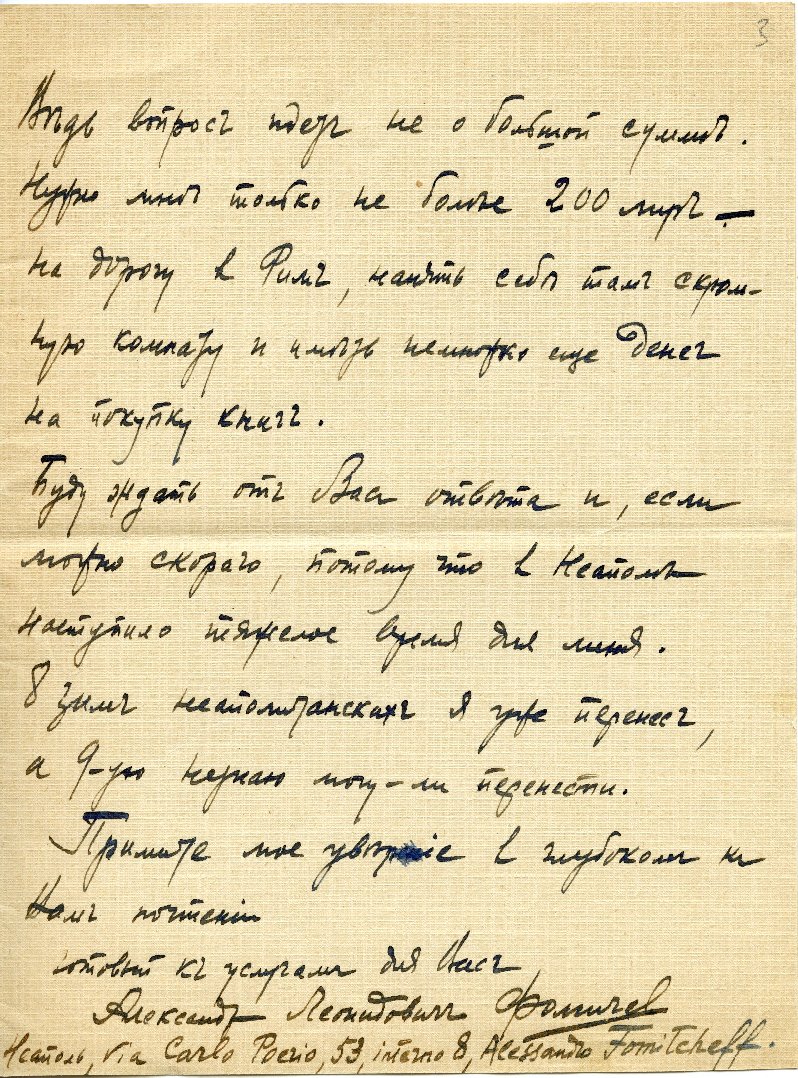 3
Вѣдь вопросъ идетъ не о большой суммѣ.
Нужно мнѣ только не болѣе 200 лиръ —
на дорогу в Римъ, нанять себѣ тамъ скром-
ную комнату и имѣть немножко еще денег
на покупку книгъ.
Буду ждать отъ Васъ отвѣта и, если
можно скораго, потому что в Неаполѣ
наступило тяжелое время для меня.
8 зимъ неаполитанскихъ я уже перенесъ,
а 9-ую незнаю могу-ли перенести.
Примите мое увѣреніе в глубокомъ къ
Вамъ почтеніи
готовый къ услугамъ для Васъ
Александръ Леонидовичъ Фомичев
Неаполь, Via Carlo Poerio, 53, interno 8, Alessandro Fomitcheff.